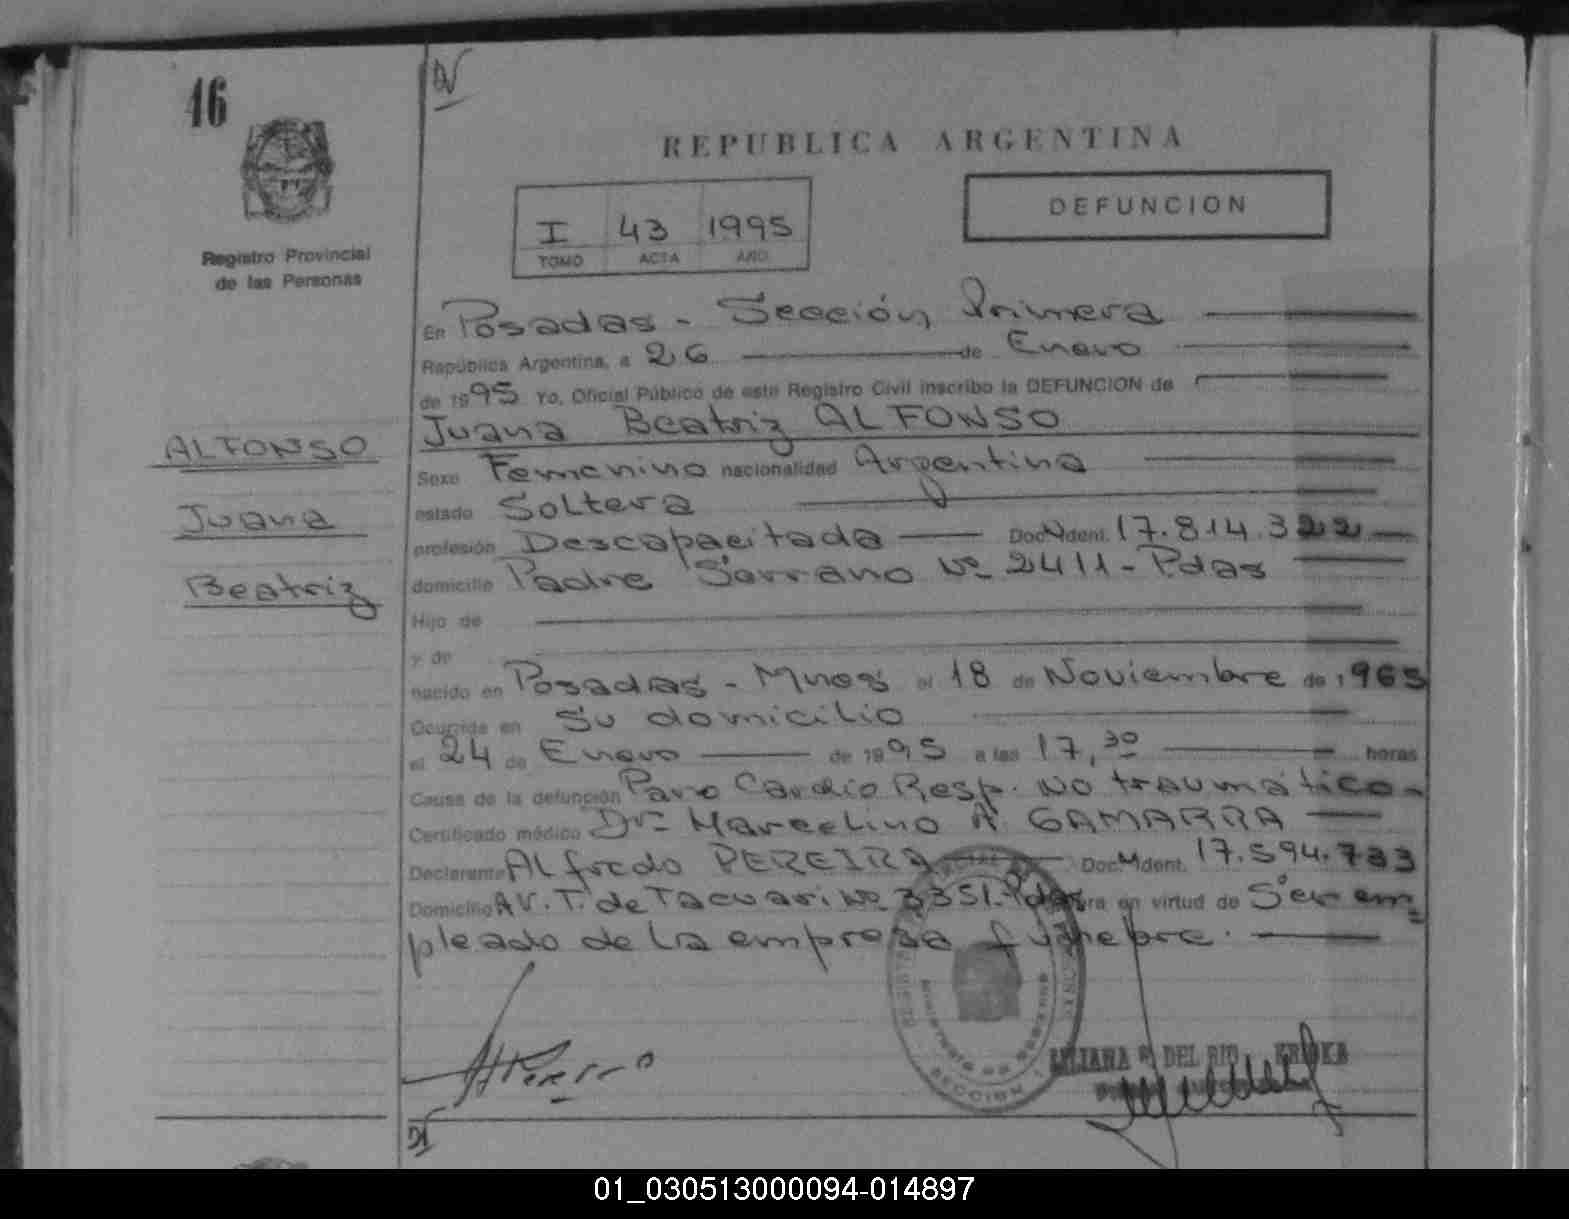 46
REPUBLICA ARGENTINA
I 43 1995
TOMO ACTA AÑO
DEFUNCION
Registro Provincial
de las Personas
En Posadas - Sección Primera
República Argentina, a 26 de Enero
de 1995 Yo, Oficial Público de este Registro Civil inscribo la DEFUNCION de
Juana Beatriz ALFONSO
ALFONSO
Juana
Beatriz
Sexo Femenino nacionalidad Argentina
estado Soltera
profesión Descapacitada Doc. Ident. 17.814.322
domicilio Padre Serrano Nº 2411 - Pdas
Hijo de
y de
nacido en Posadas - Mnes el 18 de Noviembre de 1965
Ocurrida en su domicilio
el 24 de Enero de 1995 a las 17,30 horas
Causa de la defunción Paro Cardio Resp. No traumático -
Certificado médico Dr. Marcelino A GAMARRA
Declarante Alfredo PEREIRA Doc. Ident. 17.594.733
Domicilio AV. T. de Tacuari Nº 3351 - Pdas en virtud de Ser em=
pleado de la empresa funebre.
SECCION 1
LILIANA DEL RIO
01_030513000094-014897